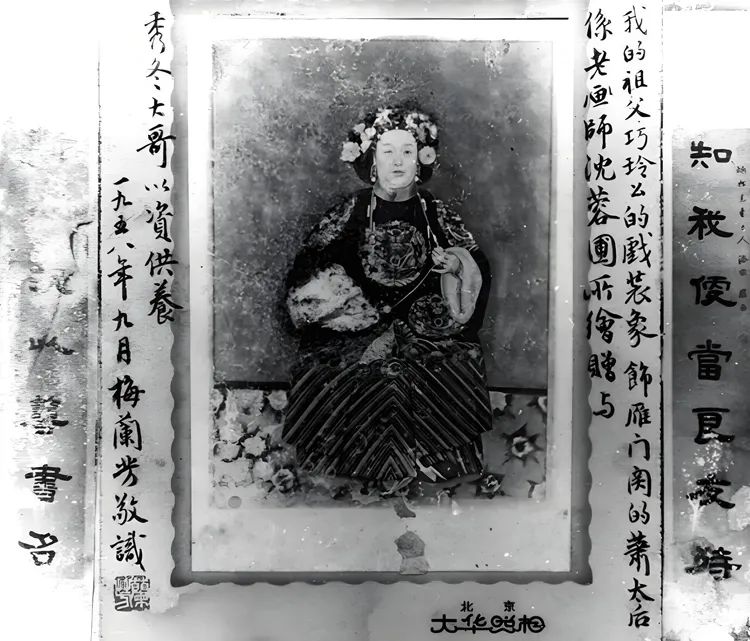 知我便當良友待
我的祖父巧玲公的戲装象飾雁门関的萧太后
係老画師沈蓉圃所繪贈与
秀冬大哥以資供養
一九五八年九月梅蘭芳敬識
書名
北京
大华照相